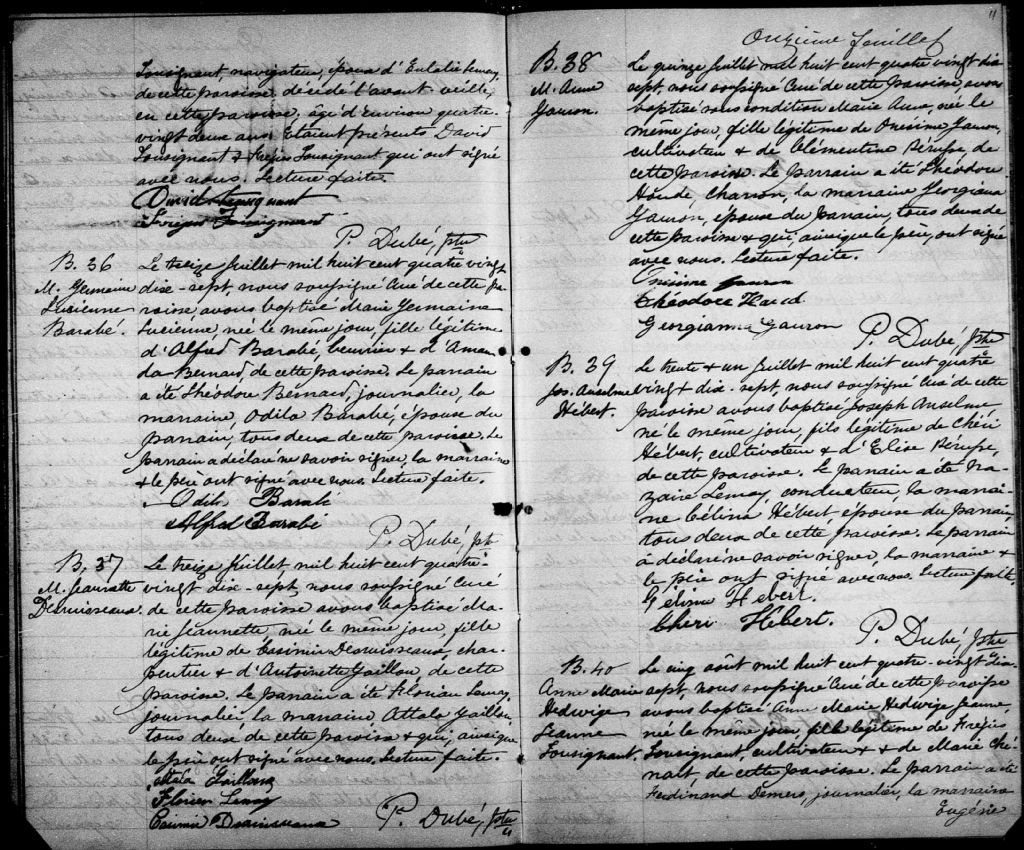 Tousignant, navigateur, époux d'Eulalie Lemay,
de cette paroisse, décédé l'avant veille,
en cette paroisse, âgé d'environ quatre-
vingt deux ans. Etaient présents David
Tousignant & Fréjus Tousignant qui ont signé
avec nous. Lecture faite.
David Tousignant
Fréjus Tousignant
P. Dubé, ptre
B. 36
M. Germaine
Lucienne
Barabé.
Le treize Juillet mil huit cent quatre vingt
dix-sept, nous soussigné Curé de cette pa-
roisse, avons baptisé Marie Germaine
Lucienne, née le même jour, fille légitime
d'Alfred Barabé, beurrier & d'Aman
da Bernard, de cette paroisse. Le parrain
a été Théodore Bernard, journalier, la
marraine, Odila Barabé, épouse du
parrain, tous deux de cette paroisse. Le
parrain a déclaré ne savoir signer, la marraine
& le père ont signé avec nous. Lecture faite.
Odila Barabé
Alfred Barabé
P. Dubé, ptr
B. 37
M. Jeannette
Desruisseaux.
Le treize Juillet mil huit cent quatre-
vingt dix-sept, nous soussigné Curé
de cette paroisse avons baptisé Ma-
rie Jeannette, née le même jour, fille
légitime de Casimir Desruisseaux, char-
pentier & d'Antoinette Gaillou de cette
paroisse. Le parrain a été Florian Lemay,
journalier, la marraine, Attala Gaillou,
tous deux de cette paroisse & qui, ainsi que
le père ont signé avec nous. Lecture faite.
Attala Gailloux
Florien Lemay
Casimir Desruisseaux
P. Dubé, Ptre
11
Onzième feuillet
B. 38
M. Anna
Gauron.
Le quinze Juillet mil huit cent quatre vingt dix
sept, nous soussigné Curé de cette paroisse, avons
baptisé sous condition Marie Anna, née le
même jour, fille légitime de Onésime Gauron,
cultivateur & de Clémentine Bérupé de
cette paroisse. Le parrain a été Théodore
Houde, charron, la marraine Georgiana
Gauron, épouse du parrain, tous deux de
cette paroisse & qui, ainsi que le père, ont signé
avec nous. Lecture faite.
Onisime Gauron
théodore Houd
Georgianna Gauron
P. Dubé, Ptre
B. 39
Jos. Anselme
Hébert.
Le trente & un Juillet mil huit cent quatre
vingt & dix-sept, nous soussigné Curé de cette
paroisse avons baptisé Joseph Anselme
né le même jour, fils légitime de Chéri
Hébert, cultivateur & d'Elise Bérupé,
de cette paroisse. Le parrain a été Na-
zaire Lemay, conducteur, la marrai-
ne Célina Hébert épouse du parrain,
tous deux de cette paroisse. Le parrain
a déclaré ne savoir signer, la marraine &
le père ont signé avec nous. Lecture faite.
Célina Hebert.
Chéri Hébert.
P. Dubé, Ptre
B. 40
Anne Marie
Hedwige
Jeanne
Tousignant.
Le cinq août mil huit cent quatre-vingt dix-
sept, nous soussigné Curé de cette paroisse
avons baptisé Anne Marie Hedwige Jeanne,
née le même jour, fille légitime de Fréjus
Tousignant, cultivateur & & de Marie Ché-
nait, de cette paroisse. Le parrain a été
Ferdinand Demers, journalier, la marraine
Eugénie